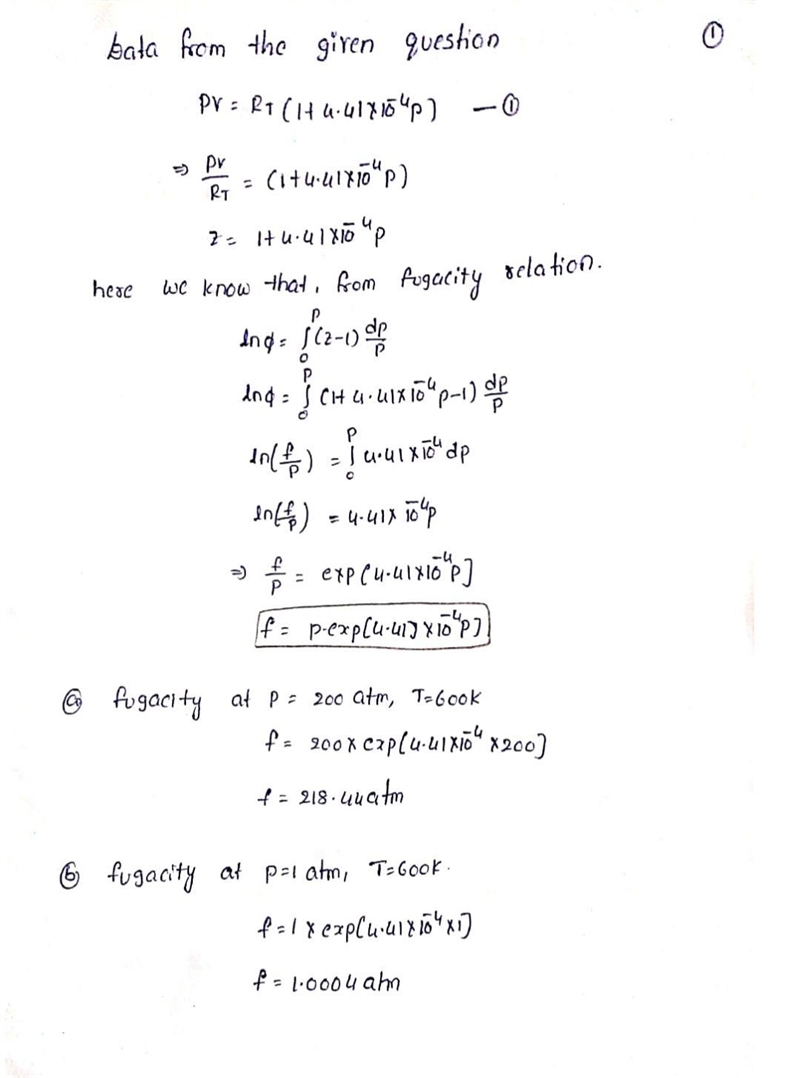 Data from the given question ①
PV = RT (1+ 4.41×10⁻⁴p) — ①
⇒ PV/RT = (1+4.41×10⁻⁴P)
Z = 1+ 4.41×10⁻⁴p
here we know that, from fugacity relation.
lnφ = ∫₀ᴾ (z-1) dp/p
lnφ = ∫₀ᴾ (1+ 4.41×10⁻⁴p-1) dp/p
ln(f/p) = ∫₀ᴾ 4.41×10⁻⁴ dp
ln(f/p) = 4.41× 10⁻⁴p
⇒ f/p = exp[4.41×10⁻⁴P]
f = p.exp[4.41]×10⁻⁴P]
ⓐ fugacity at P = 200 atm, T=600K
f = 200× exp[4.41×10⁻⁴ ×200]
f = 218.44atm
ⓑ fugacity at p=1 atm, T=600K.
f = 1 × exp[4.41×10⁻⁴×1]
f = 1.0004 atm